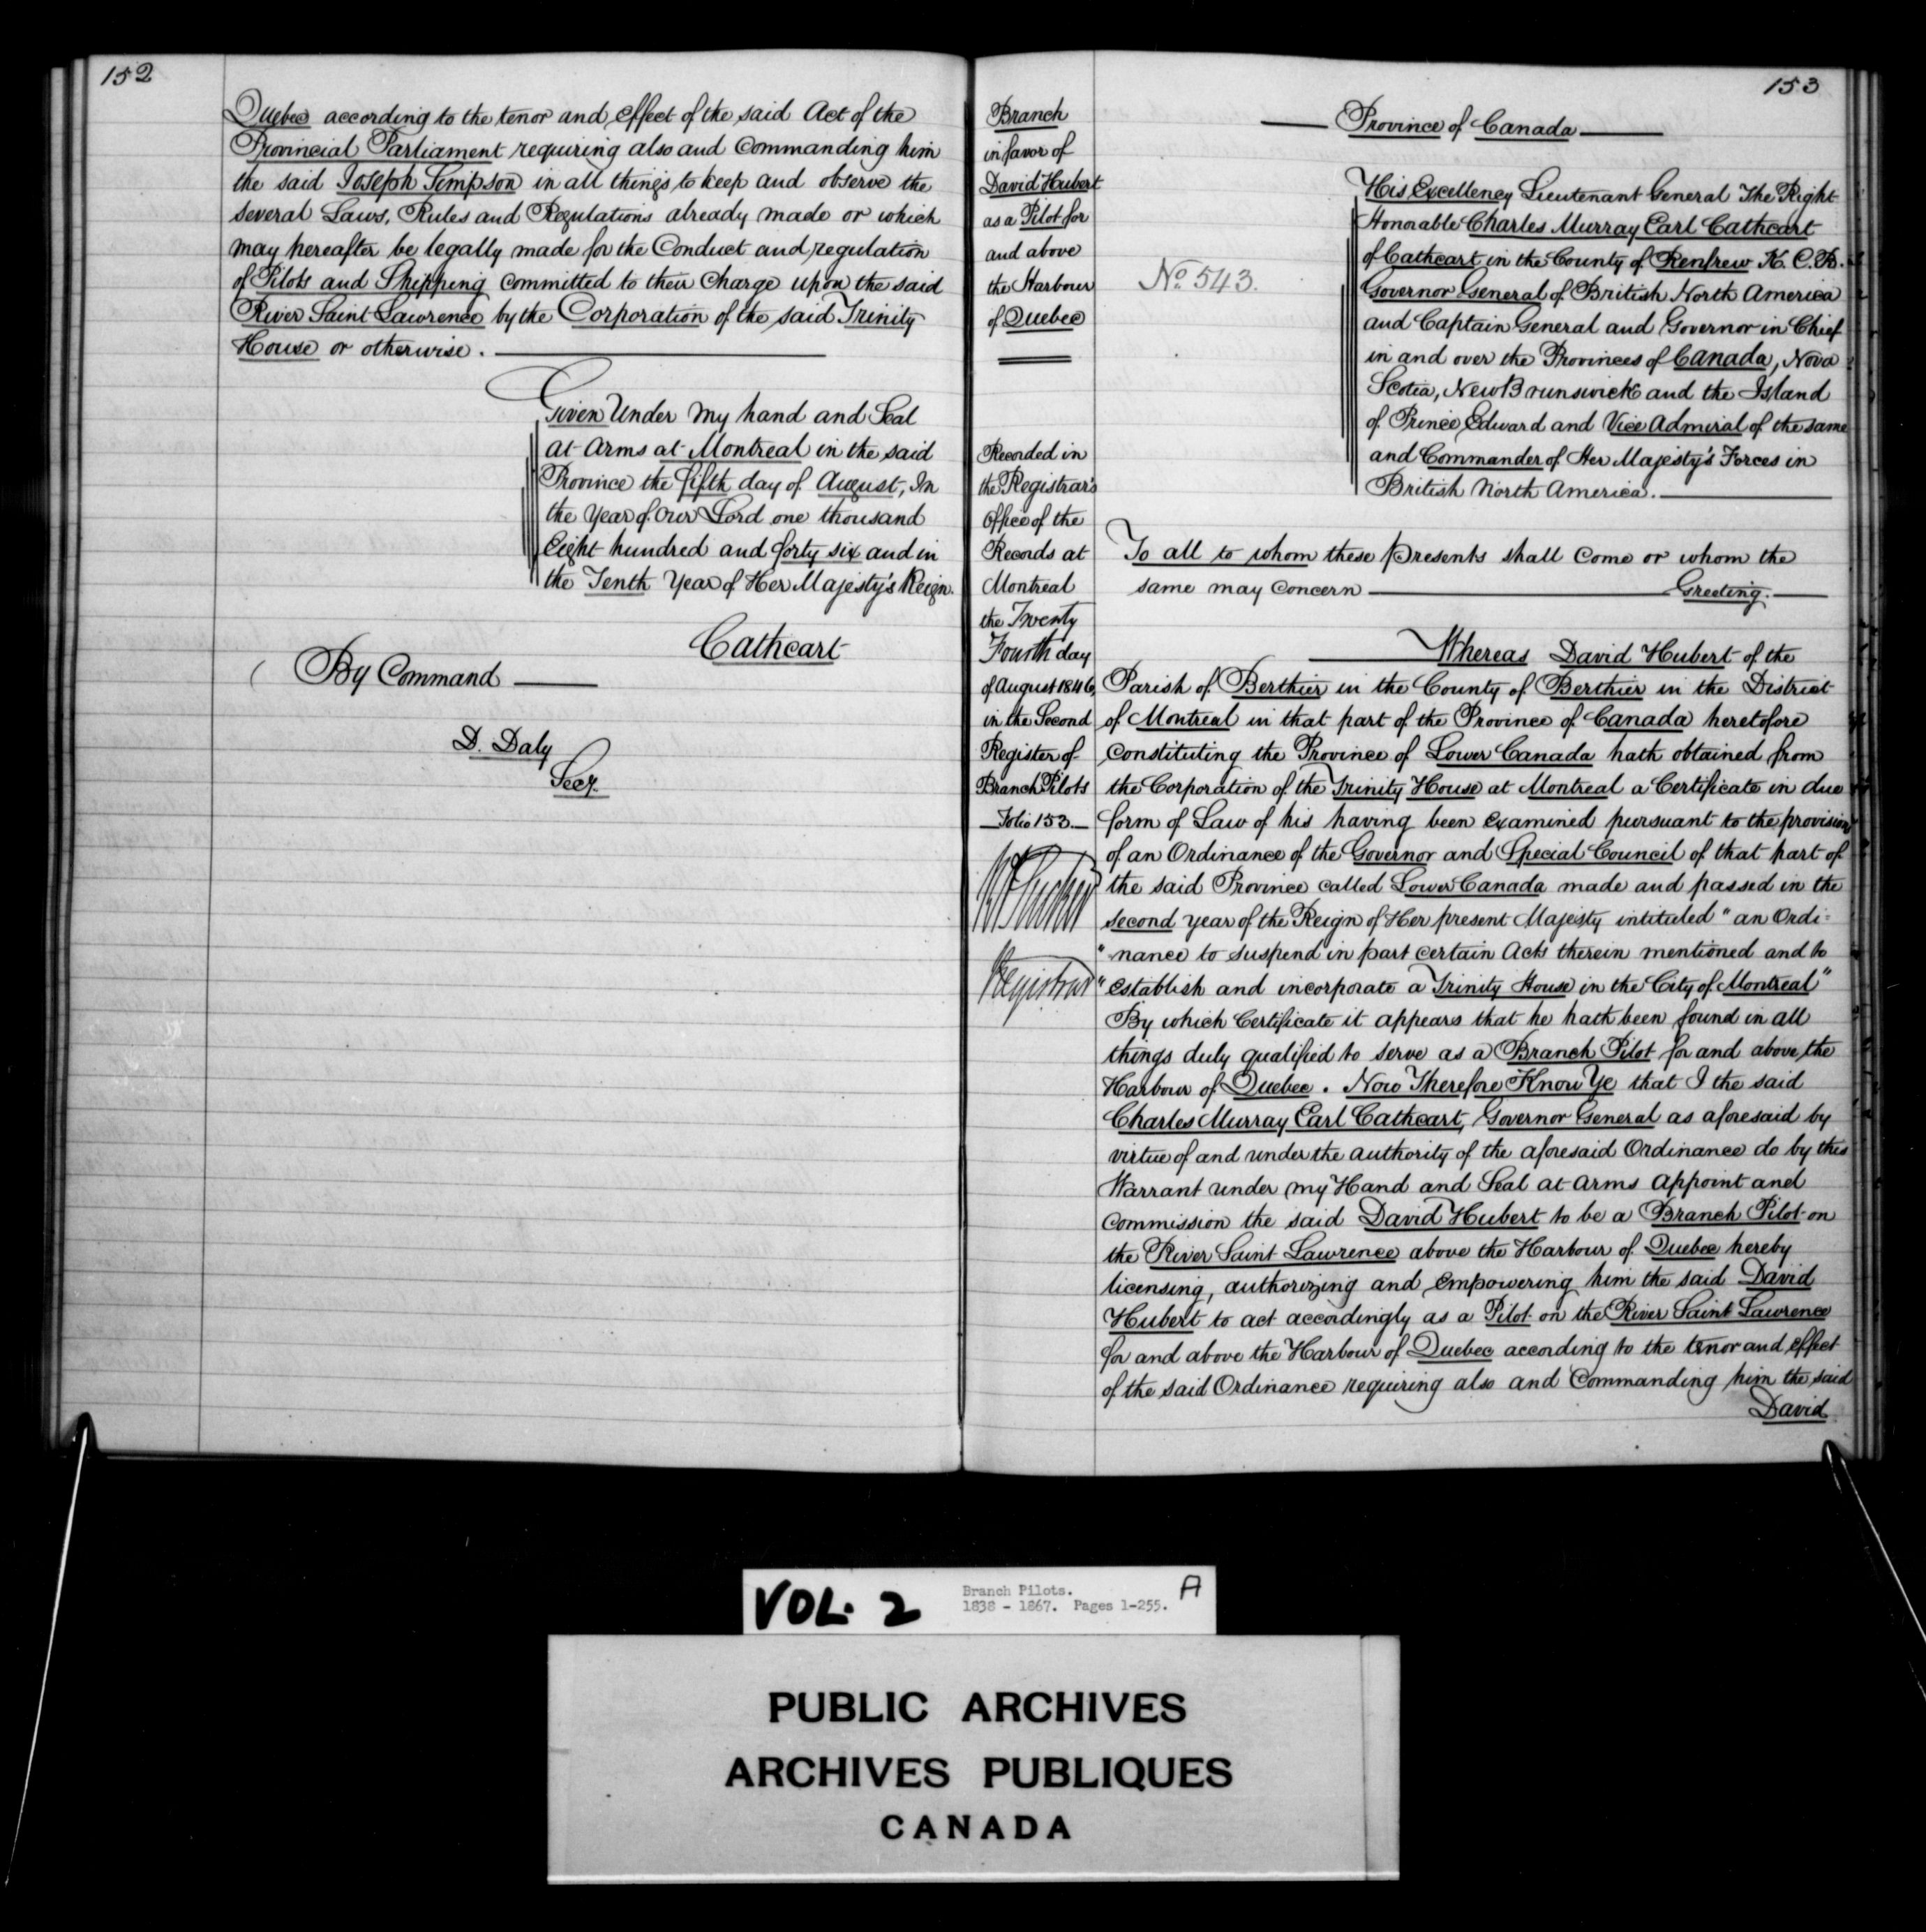 152
Quebec according to the tenor and effect of the said Act of the
Provincial Parliament requiring also and Commanding him
the said Joseph Simpson in all things to keep and observe the
several Laws, Rules and Regulations already made or which
may hereafter be legally made for the Conduct and regulation
of Pilots and Shipping committed to their Charge upon the said
River Saint Lawrence by the Corporation of the said Trinity
House or otherwise.
Given Under my hand and Seal
at arms at Montreal in the said
Province the fifth day of August, In
the Year of Our Lord one thousand
Eight hundred and forty six and in
the Tenth Year of Her Majesty's Reign.
Cathcart
By Command
D. Daly
Secy.
153
Branch
in favor of
David Hubert
as a Pilot for
and above
the Harbour
of Quebec
Recorded in
the Registrar's
Office of the
Records at
Montreal
the Twenty
Fourth day
of August 1846,
in the Second
Register of
Branch Pilots
Folio 153.
Registrar
Province of Canada
No. 543.
His Excellency Lieutenant General The Right
Honorable Charles Murray Earl Cathcart
of Cathcart in the County of Renfrew K. C. B.
Governor General of British North America
and Captain General and Governor in Chief
in and over the Provinces of Canada, Nova
Scotia, New Brunswick and the Island
of Prince Edward and Vice Admiral of the same
and Commander of Her Majesty's Forces in
British North America.
To all to whom these Presents shall Come or whom the
same may Concern Greeting.
Whereas David Hubert of the
Parish of Berthier in the County of Berthier in the District
of Montreal in that part of the Province of Canada heretofore
constituting the Province of Lower Canada hath obtained from
the Corporation of the Trinity House at Montreal a Certificate in due
form of Law of his having been examined pursuant to the provisions
of an Ordinance of the Governor and Special Council of that part of
the said Province called Lower Canada made and passed in the
second year of the Reign of Her present Majesty intituled "an Ordi=
"nance to suspend in part certain Acts therein mentioned and to
"establish and incorporate a Trinity House in the City of Montreal"
By which Certificate it appears that he hath been found in all
things duly qualified to serve as a Branch Pilot for and above the
Harbour of Quebec. Now Therefore Know Ye that I the said
Charles Murray Earl Cathcart, Governor General as aforesaid by
virtue of and under the authority of the aforesaid Ordinance do by this
Warrant under my Hand and Seal at arms appoint and
commission the said David Hubert to be a Branch Pilot on
the River Saint Lawrence above the Harbour of Quebec hereby
licensing, authorizing and empowering him the said David
Hubert to act accordingly as a Pilot on the River Saint Lawrence
for and above the Harbour of Quebec according to the tenor and effect
of the said Ordinance requiring also and Commanding him the said
David
VOL. 2
Branch Pilots.
1838 - 1867. Pages 1-255.
A
PUBLIC ARCHIVES
ARCHIVES PUBLIQUES
CANADA